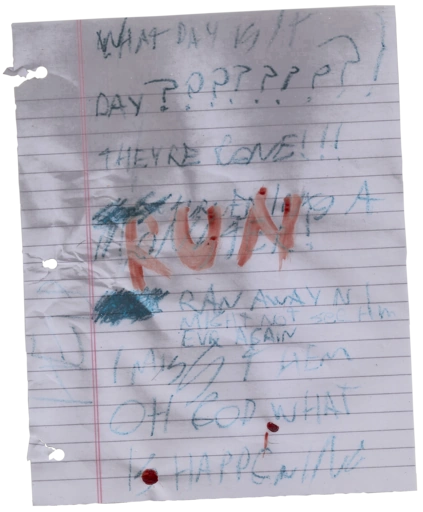 WHAT DAY IS IT
DAY ????????!
THEYRE GONE!!!
A
RUN
RAN AWAY N I
MIGHT NOT SEE HIM
EVR AGAIN
I MISS THEM
OH GOD WHAT
IS HAPPENING